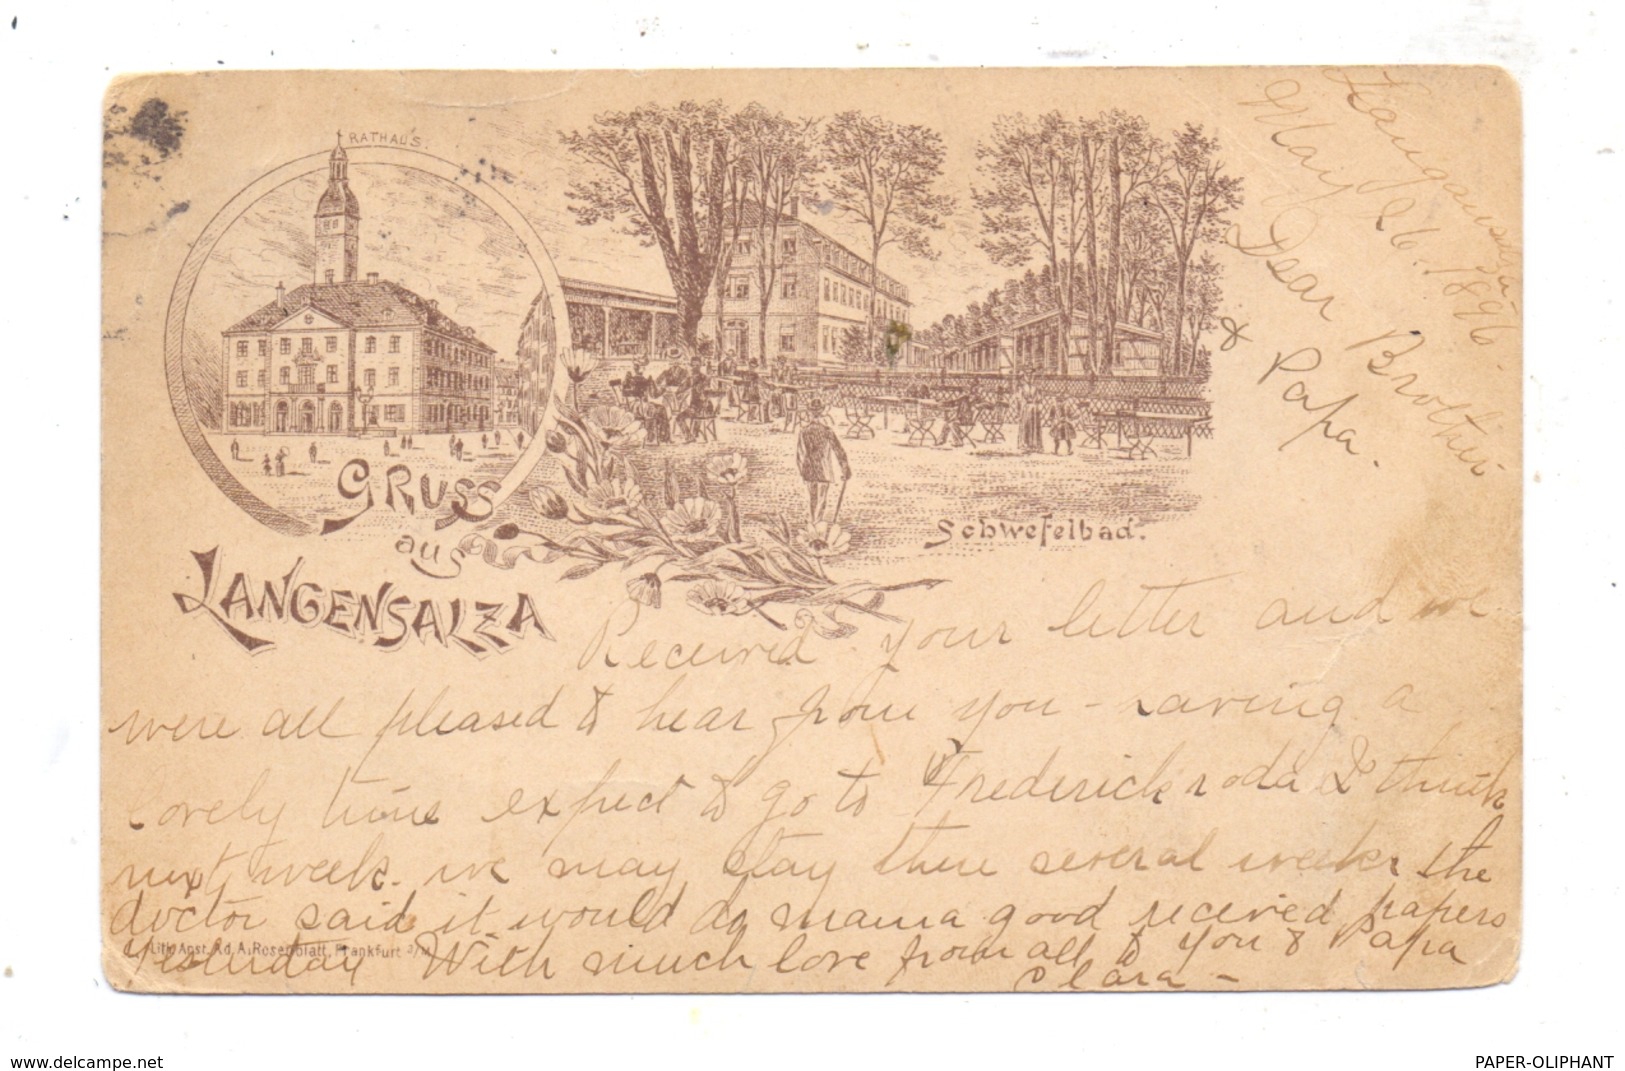 RATHAUS.
GRUSS
aus
LANGENSALZA
Schwefelbad.
Langensalza -
May 26. 1896.
Dear Brother
& Papa.
Received your letter and we
were all pleased to hear from you - having a
lovely time expect to go to Frederickroda I think
next week. we may stay there several weeks the
doctor said it would do mama good received papers
yesterday With much love from all to you & Papa
Clara -
Lith. Anst. Ad. A. Rosenblatt, Frankfurt a/M
delcampe.net
PAPER-OLIPHANT